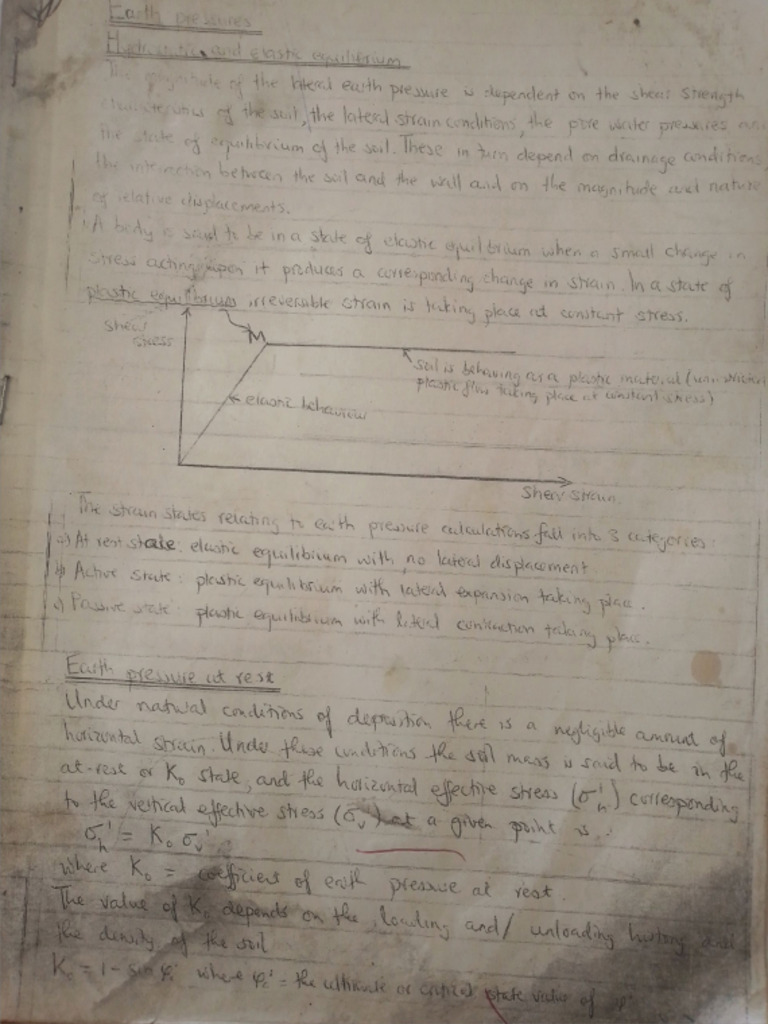 Earth pressures
Hydrostatic and elastic equilibrium
The magnitude of the lateral earth pressure is dependent on the shear strength
characteristics of the soil, the lateral strain conditions, the pore water pressures and
the state of equilibrium of the soil. These in turn depend on drainage conditions,
the interaction between the soil and the wall and on the magnitude and nature
of relative displacements.
A body is said to be in a state of elastic equilibrium when a small change in
stress acting upon it produces a corresponding change in strain. In a state of
plastic equilibrium irreversible strain is taking place at constant stress.
shear
stress
soil is behaving as a plastic material (
plastic flow taking place at constant stress)
elastic behaviour
Shear strain
The strain states relating to earth pressure calculations fall into 3 categories:
a) At rest state: elastic equilibrium with no lateral displacement
b) Active state: plastic equilibrium with lateral expansion taking place.
c) Passive state: plastic equilibrium with lateral contraction taking place.
Earth pressure at rest
Under natural conditions of deposition there is a negligible amount of
horizontal strain. Under these conditions the soil mass is said to be in the
at-rest or K₀ state, and the horizontal effective stress (σh') corresponding
to the vertical effective stress (σv') at a given point is:
σh' = K₀ σv'
where K₀ = coefficient of earth pressure at rest.
The value of K₀ depends on the loading and/ unloading history and
the density of the soil
K₀ = 1 - sin φc' where φc' = the ultimate or critical state value of φ'